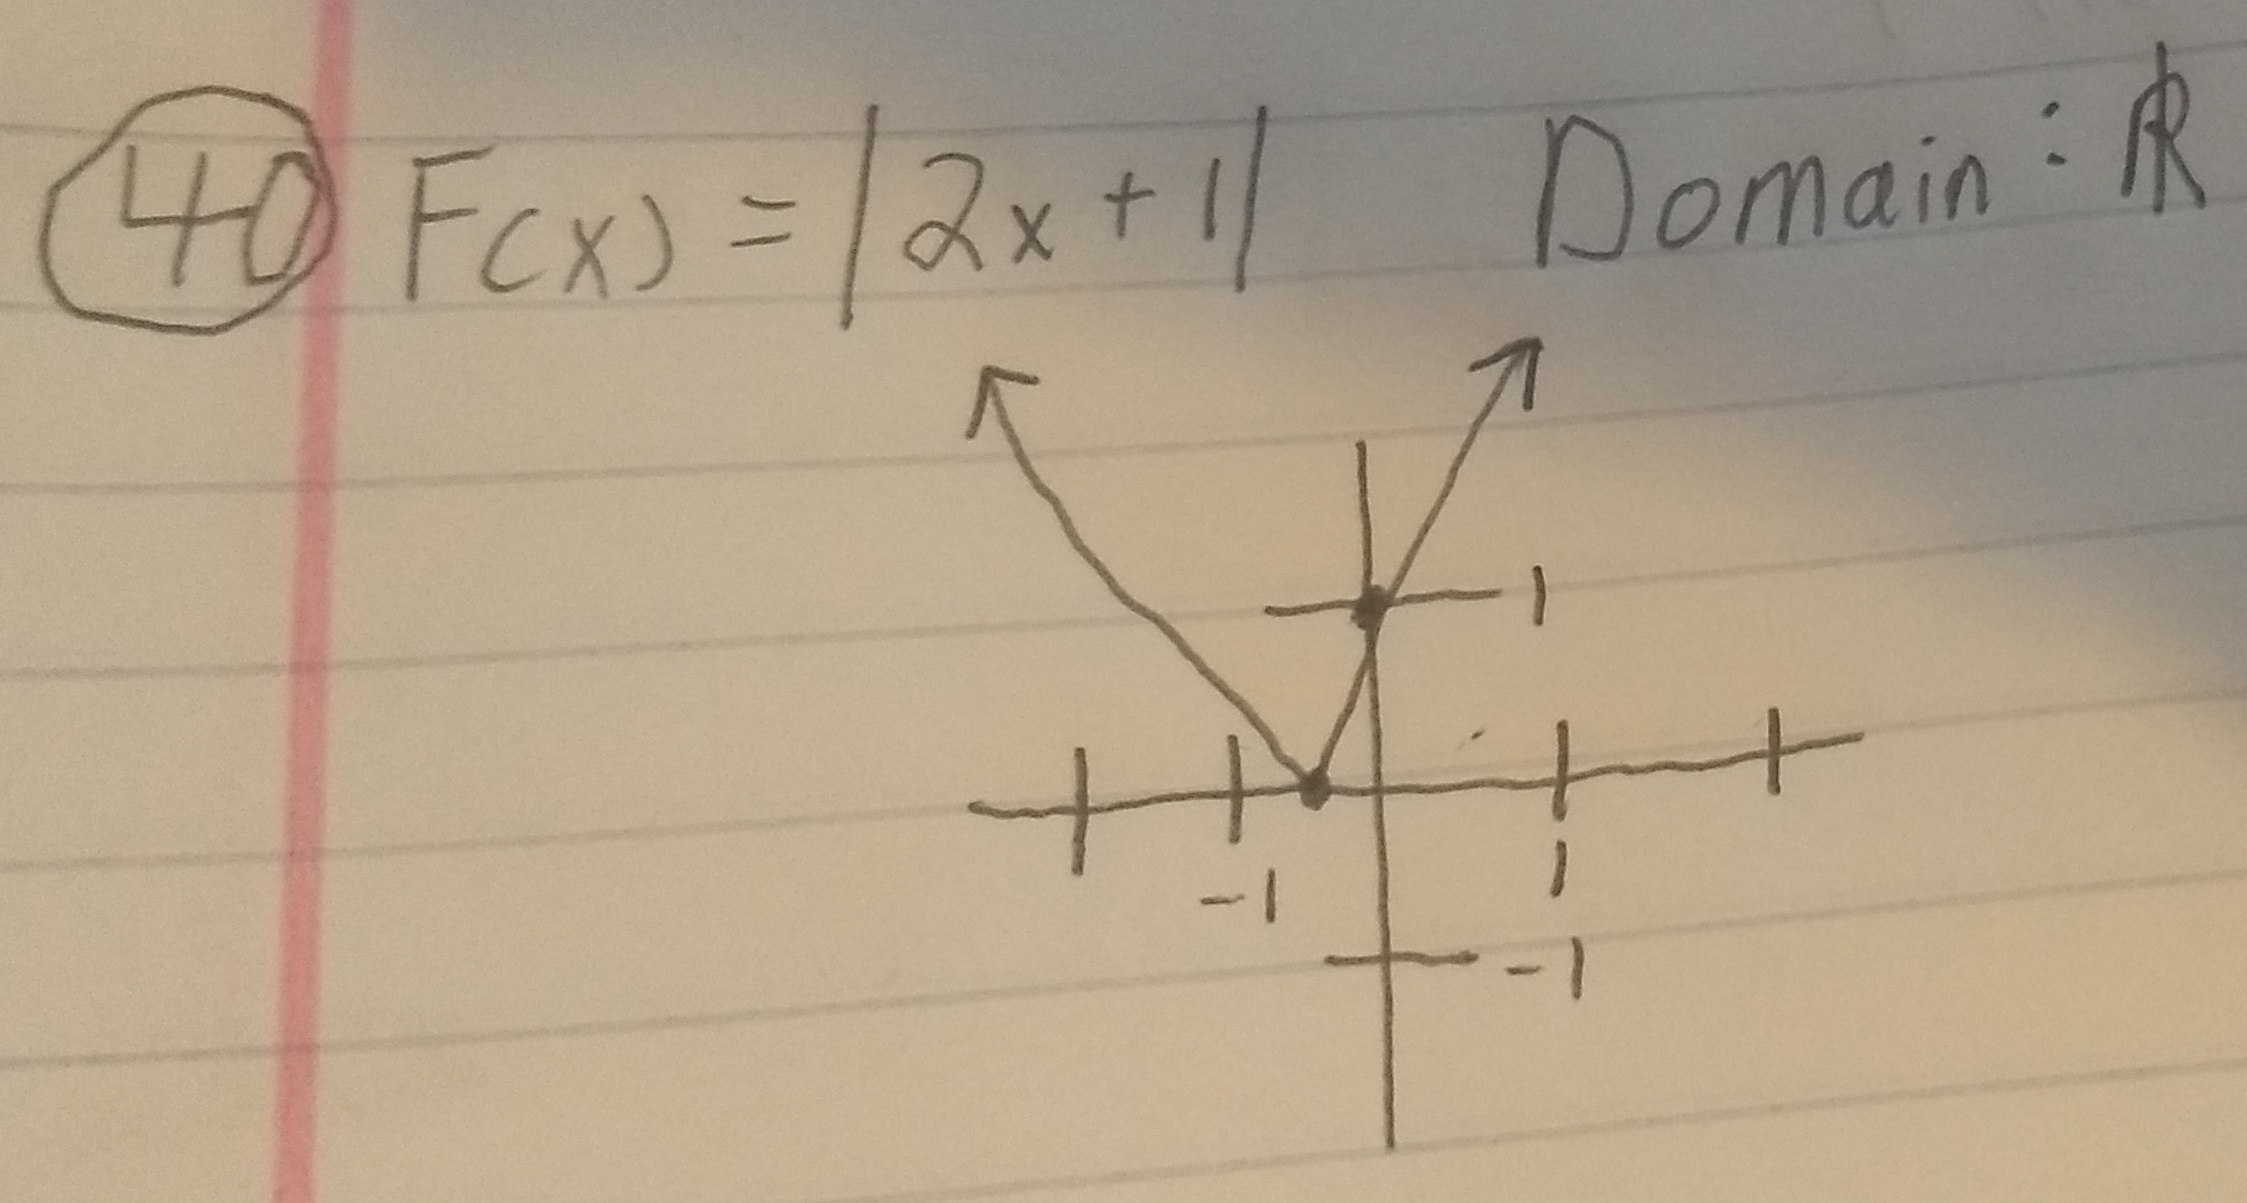 40 F(x) = |2x + 1| Domain: ℝ
1
-1 1
-1